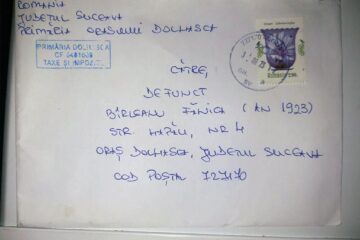 ROMANIA
JUDEȚUL SUCEAVA
PRIMĂRIA ORAȘULUI DOLHASCA
PRIMĂRIA DOLHASCA
TAXE ȘI IMPOZITE
CĂTRE,
DEFUNCT
BÎRLEANU FĂNICA (AN 1923)
STR. NR 4
ORAȘ DOLHASCA, JUDEȚUL SUCEAVA
COD POSTA 727170